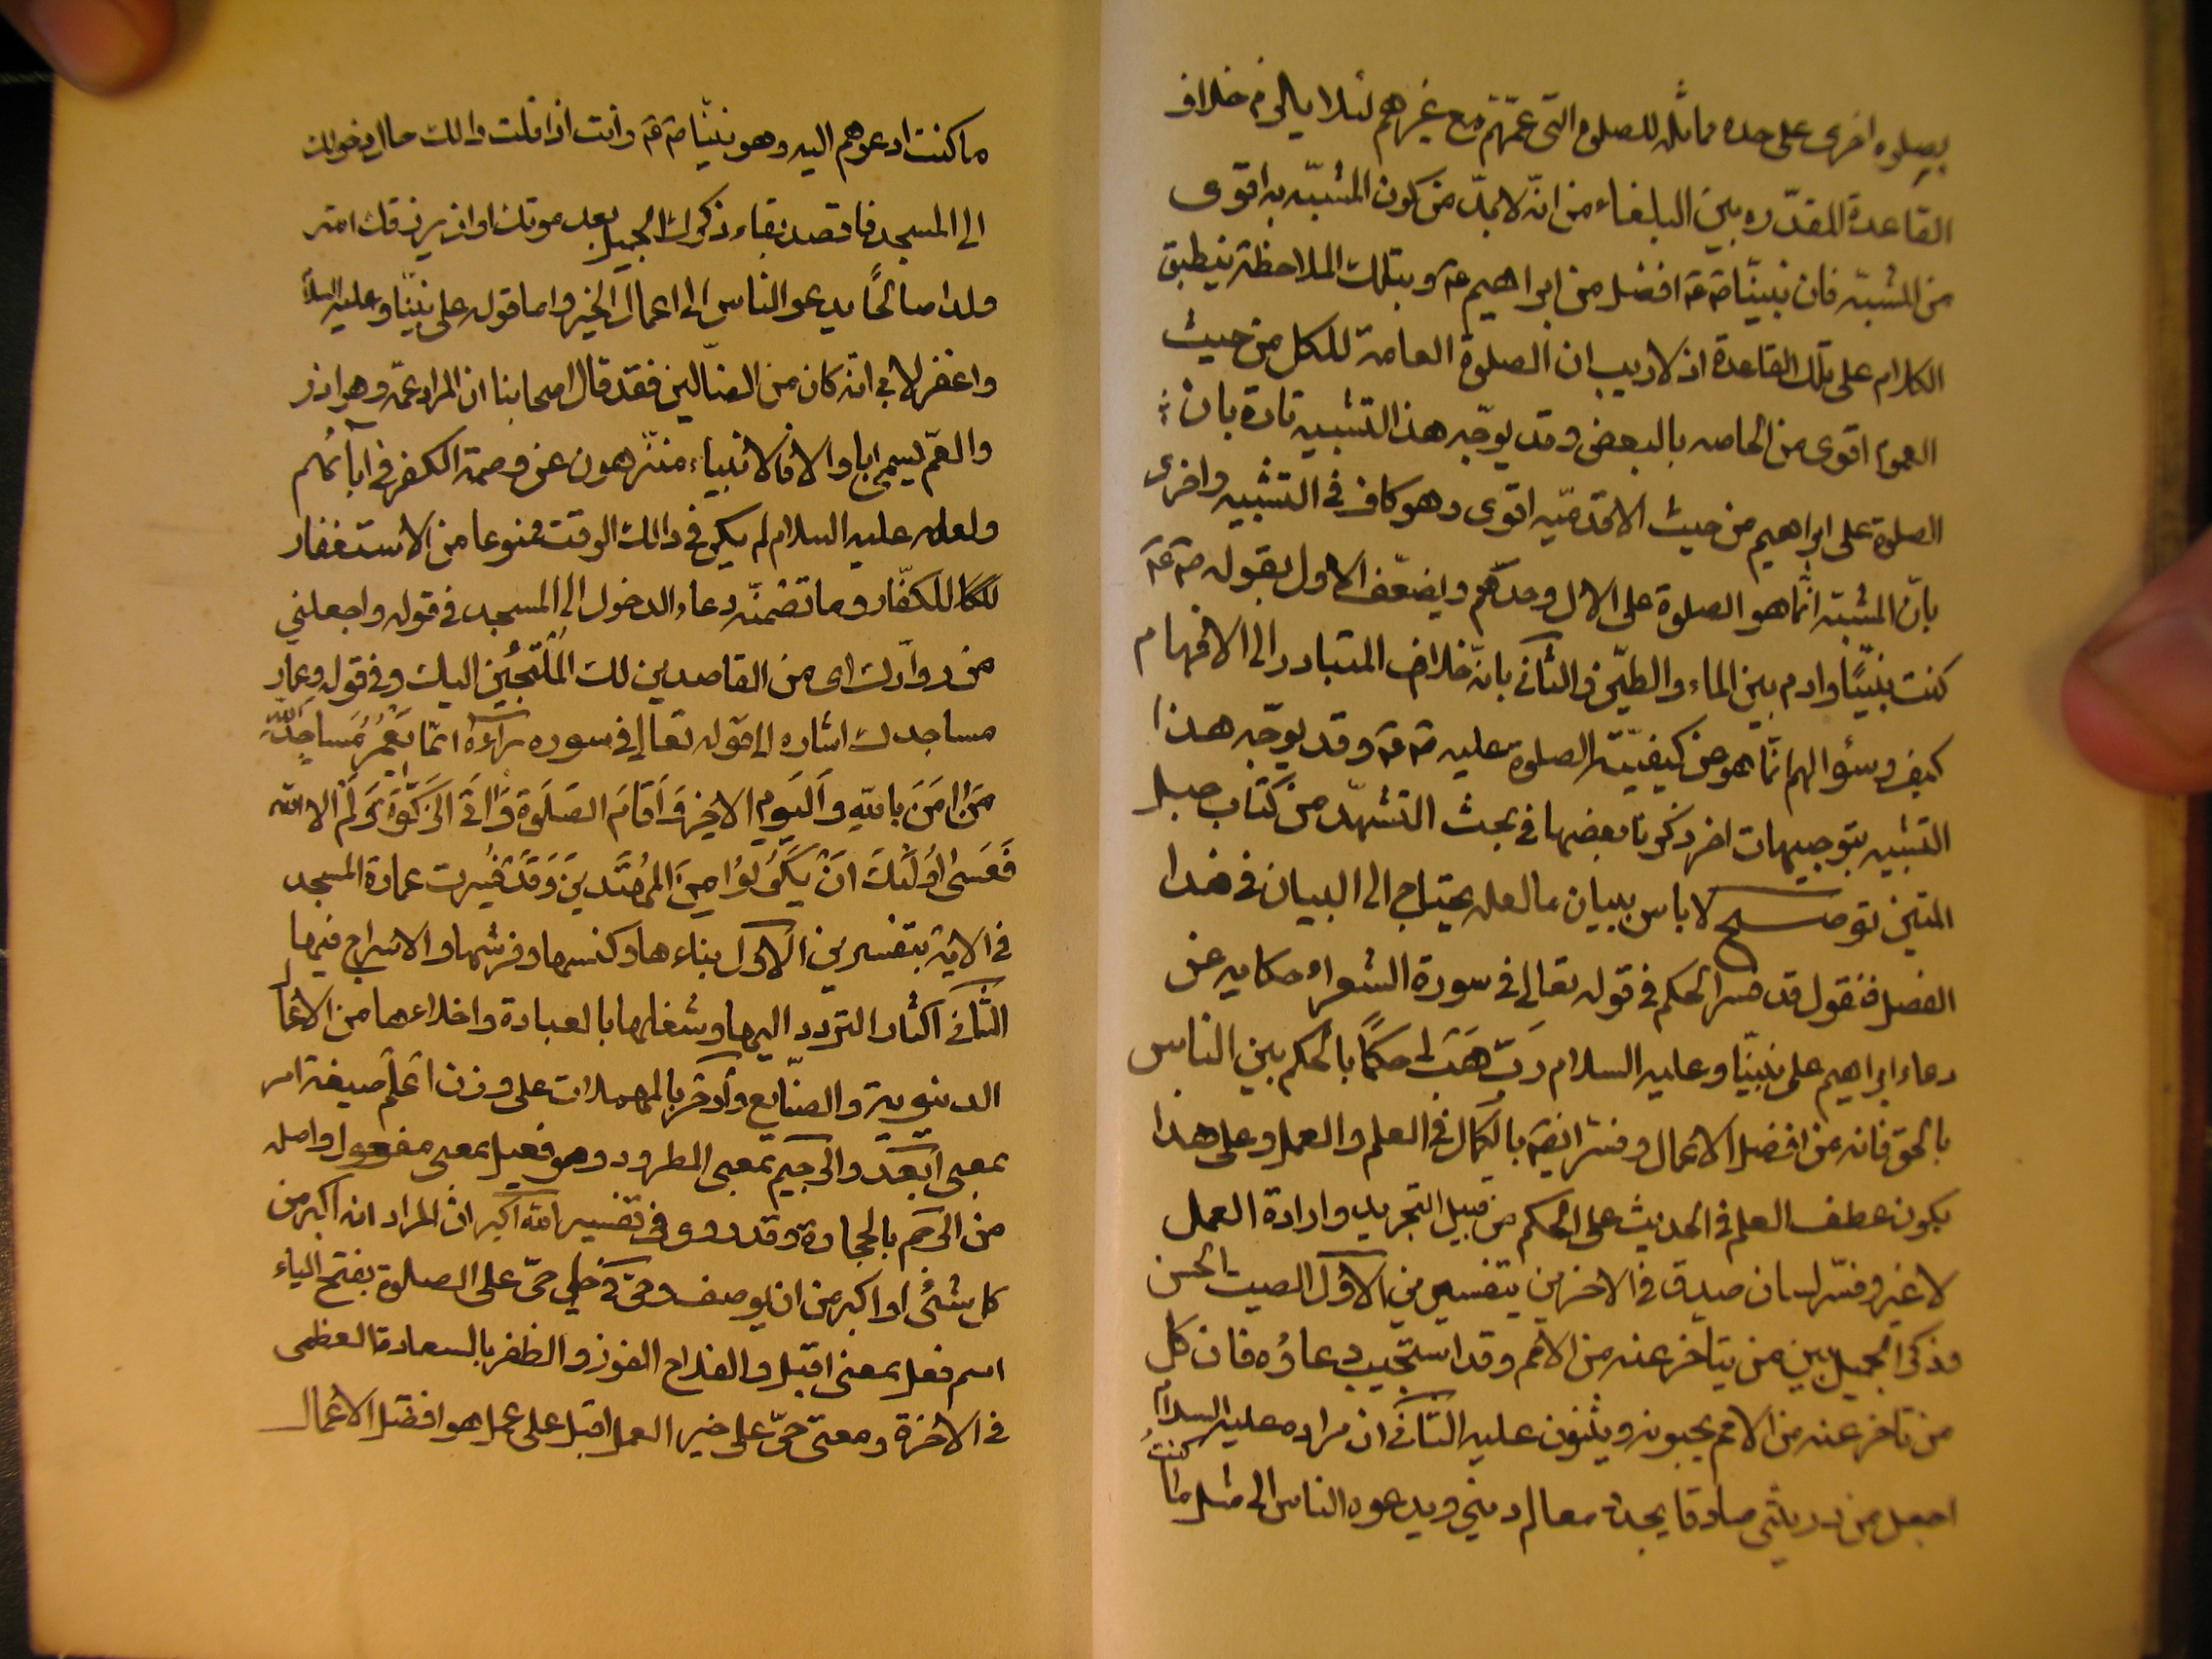 بصلوه اخرى على حده مماثله للصلوة التى عمّتهم مع غيرهم لئلا يلزم خلاف
القاعدة المقرّره بين البلغاء من انّه لا بدّ من كون المشبّه به اقوى
من المشبّه فان نبيّنا ص ع افضل من ابراهيم ع و بتلك الملاحظة ينطبق
الكلام على تلك القاعدة اذ لا ريب ان الصلوة العامة للكل من حيث
العموم اقوى من الخاصه بالبعض وقد يوجّه هذا التشبيه تارة بان
الصلوة على ابراهيم من حيث الاقدميّه اقوى وهو كاف فى التشبيه واخرى
بانّ المشبّه انّما هو الصلوة على الال وحدهم ويضعّف الاول بقوله ص ع
كنت نبيّا وادم بين الماء والطّين والثانى بانّه خلاف المتبادر الى الافهام
كيف وسؤالهم انّما هو عن كيفيّة الصلوة عليه ص ع وقد يوجّه هذا
التشبيه بتوجيهات اخر ذكرنا بعضها فى بحث التشهّد من كتاب حبل
المتين توضيح لا باس ببيان ما لعله يحتاج الى البيان فى هذا
الفصل فنقول قد فسر الحكم فى قوله تعالى فى سورة الشعراء حكايه عن
دعاء ابراهيم على نبيّنا وعليه السلام رَبِّ هَب لى حكمًا بالحكم بين الناس
بالحق فانه من افضل الاعمال وفسّر ايضا بالكمال فى العلم والعمل وعلى هذا
يكون عطف العلم فى الحديث على الحكم من قبيل التجريد وارادة العمل
لا غير وفسّر لسان صدق فى الاخرين بتفسيرين الاوّل الصيت الحسن
وذكر الجميل بين من يتاخّر عنه من الامم وقد استجيب دعاؤه فان كل
من تاخر عنه من الامم يحبونه ويثنون عليه الثّانى ان مراده عليه السلام
اجعل من ذريتى صادقا يجدد معالم دينى ويدعو الناس الى مثل ما كنتُ
ما كنت ادعوهم اليه وهو نبيّنا ص ع وانت اذا قلت ذالك حال دخولك
الى المسجد فاقصد بقاء ذكرك الجميل بعد موتك او ان يرزقك الله
ولدا صالحًا يدعو الناس الى اعمال الخير واما قوله على نبيّنا وعليه السلم
واغفر لابى انه كان من الضّالين فقد قال اصحابنا ان المراد عمّه وهو ازر
والعمّ يسمى ابا والا فالانبياء منزّهون عن وصمة الكفر فى ابآئهم
ولعله عليه السلام لم يكن فى ذالك الوقت ممنوعا من الاستغفار
للكفّار وما تضمنّه دعاء الدخول الى المسجد فى قوله واجعلنى
من زوّارك اى من القاصدين لك المُلْتَجِئين اليك وفى قوله وعمار
مساجدك اشاره الى قوله تعالى فى سوره براءة انمّا يَعْمُرُ مَسَاجِدَ اللّٰه
مَنْ امَنَ بِاللهِ وَالْيَومِ الاخِرِ وَاَقَامَ الصَلَوةَ وَاٰتَى الزَكَّوةَ وَلَمْ الا اللّه
فَعَسَىٰ اوُلَئِكَ اَنْ يَكُوُنُوا مِنَ المُهْتَدِينَ وَقَدْ فُسِرت عمارة المسجد
فى الاية بتفسيرين الاوّل بناءها وكنسها وفرشها والاسراج فيها
الثّانى اكثار التردد اليها وشغلها بالعبادة واخلاءها من الاعمال
الدنيوية والصنّايع وادْحَر بالمهملات على وزن اعْلَم صيغة امر
بمعنى ابْعَد والرجيم بمعنى المطرود وهو فعيل بمعنى مفعول واصله
من الرجم بالحجارة وقد روى فى تفسير الله اكبر انّ المراد انه اكبر من
كل شئى او اكبر من ان يوصف وحىّ فى حىّ على الصلوة بفتح الياء
اسم فعل بمعنى اقبل والفلاح الفوز والظفر بالسعادة العظمى
فى الاخرة ومعنى حىّ على خير العمل اقبل على عمل هو افضل الاعمال